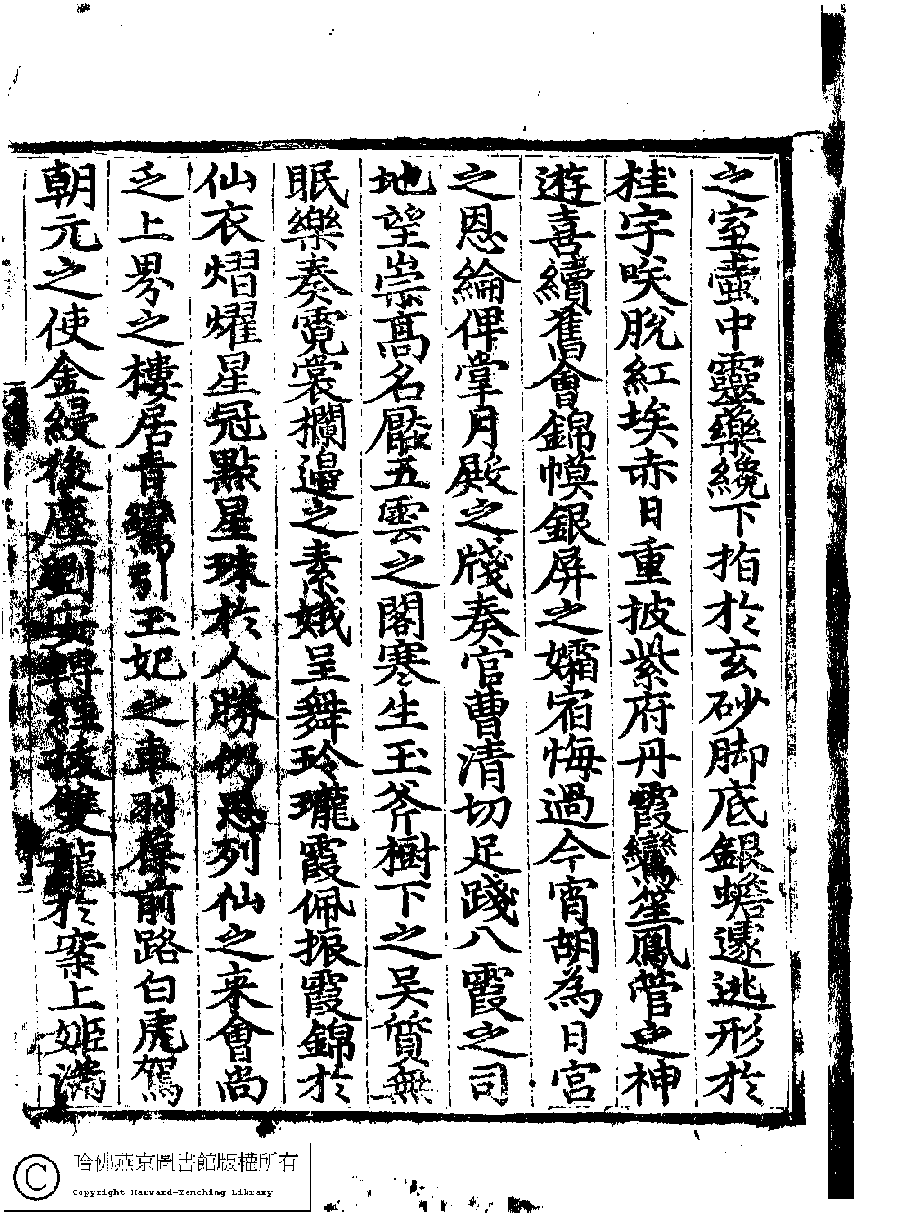 之室壼中靈藥纔下拍於玄砂脚底銀蟾遽逃形於
桂宇咲脫紅埃赤日重披紫府丹霞鸞笙鳳管之神
遊喜續舊會錦幙銀屏之孀宿悔過今宵胡為日宮
之恩綸俾掌月殿之牋奏官曹清切足踐八霞之司
地望崇高名厭五雲之閣寒生玉斧樹下之吴質無
眠樂奏霓裳攔邉之素娥呈舞玲瓏霞佩振霞錦於
仙衣熠燿星冠點星珠於人勝仍思列仙之来會尚
乏上界之樓居青鸞引玉妃之車羽葆前路白虎駕
朝元之使金縷後塵劉安轉經拔雙龍於案上姬滿
哈佛燕京圖書館版權所有
Copyright Harvard-Yenching Library